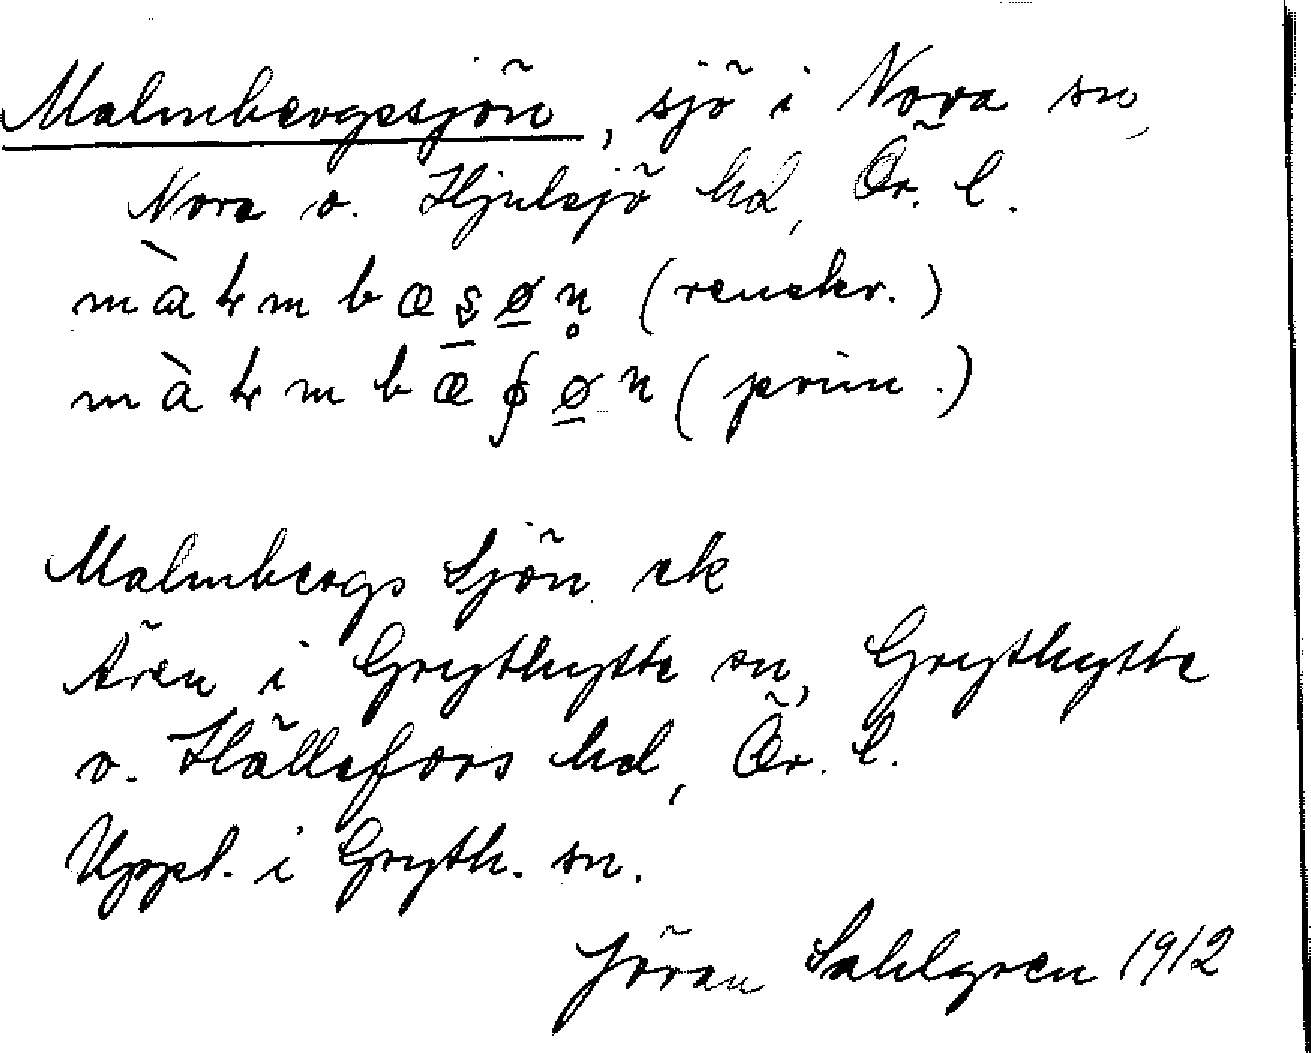 Malmbergssjön, sjö i Nora sn,
Nora o. Hjulsjö hd, Ör. l.
(renskr.)
(prim.)
Malmbergs Sjön ek
i Grythytte sn, Grythytte
o. Hällefors hd, Ör. l.
Uppl. i Gryth. sn.
Jöran Sahlgren 1912